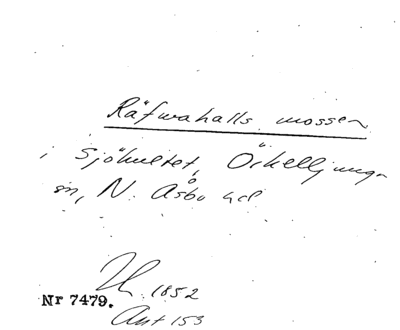 Räfwahalls mossen
i Sjöhultet, Örkelljunga
sn, N. Åsbo hd
1852
Nr 7479.
Ant 153